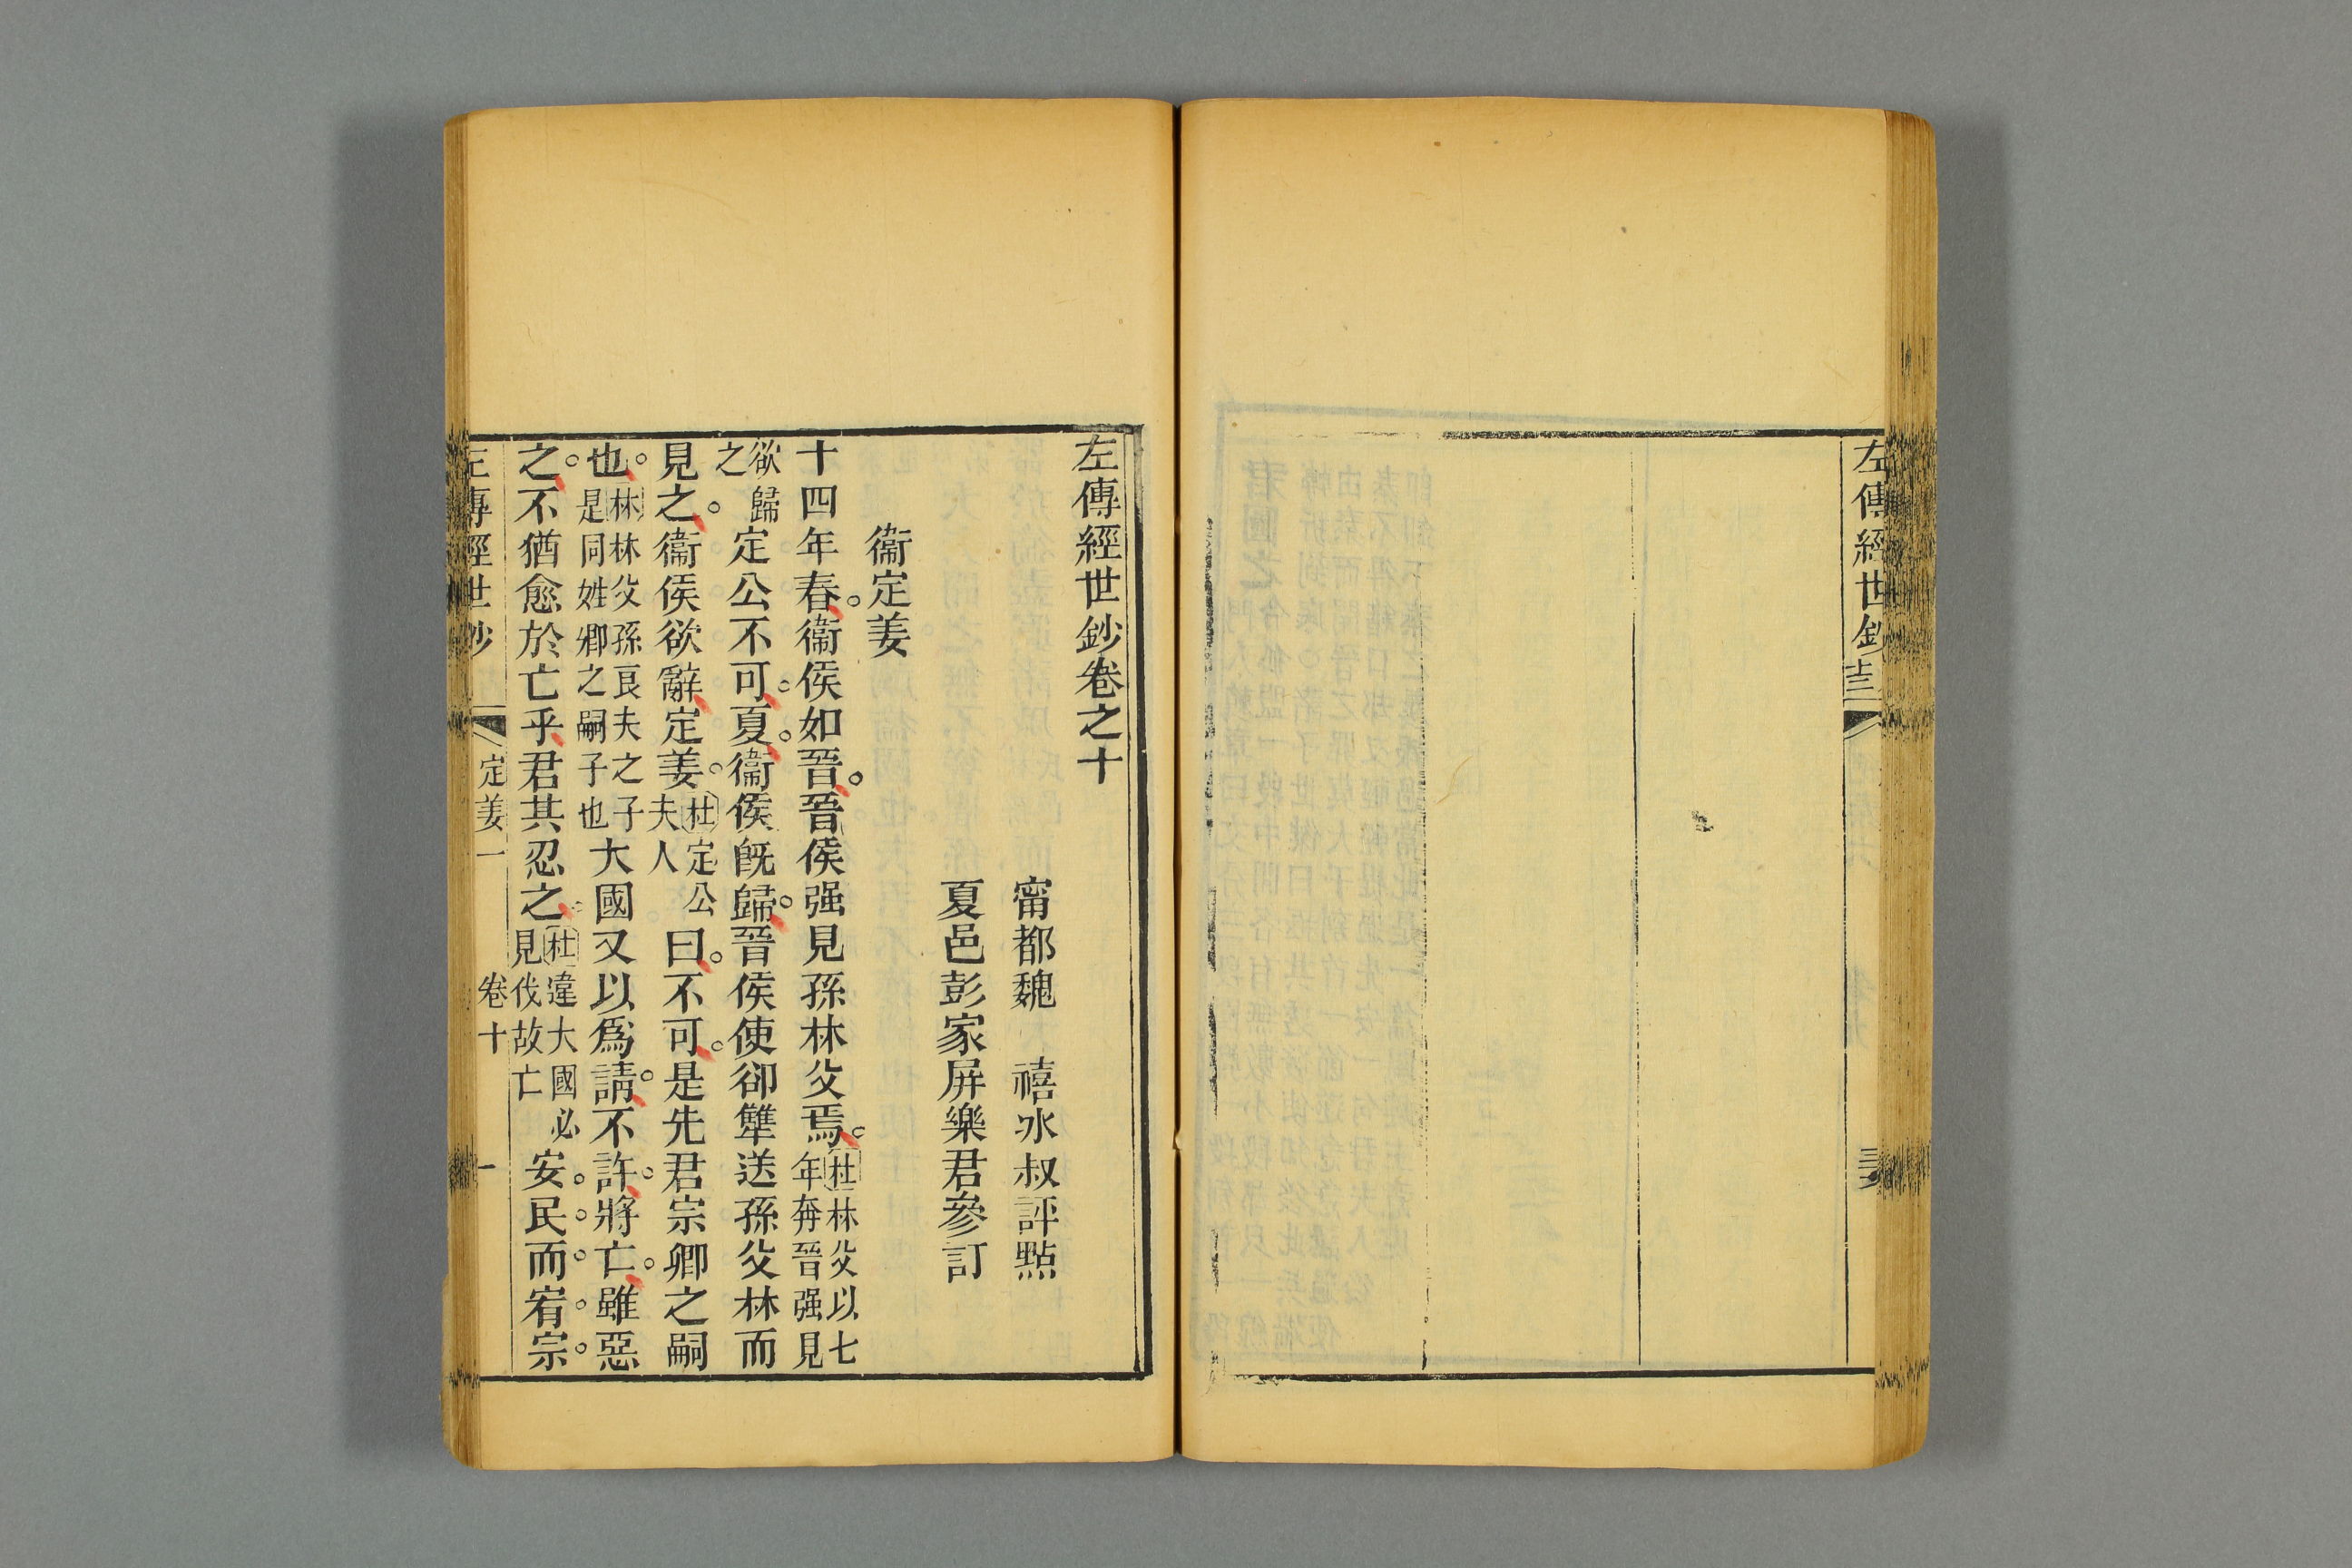 左傳經世鈔
左傳經世鈔卷之十
甯都魏 禧冰叔評點
夏邑彭家屏樂君參訂
衞定姜
十四年春衞侯如晉晉侯强見孫林父焉杜林父以七年奔晉强見
欲歸之定公不可夏衞侯既歸晉侯使郤犨送孫父林而
見之衞侯欲辭定姜杜定公夫人曰不可是先君宗卿之嗣
也林林父孫良夫之子是同姓卿之嗣子也大國又以爲請不許將亡雖惡
之不猶愈於亡乎君其忍之杜違大國必見伐故亡安民而宥宗
左傳經世鈔 定姜一 卷十 一